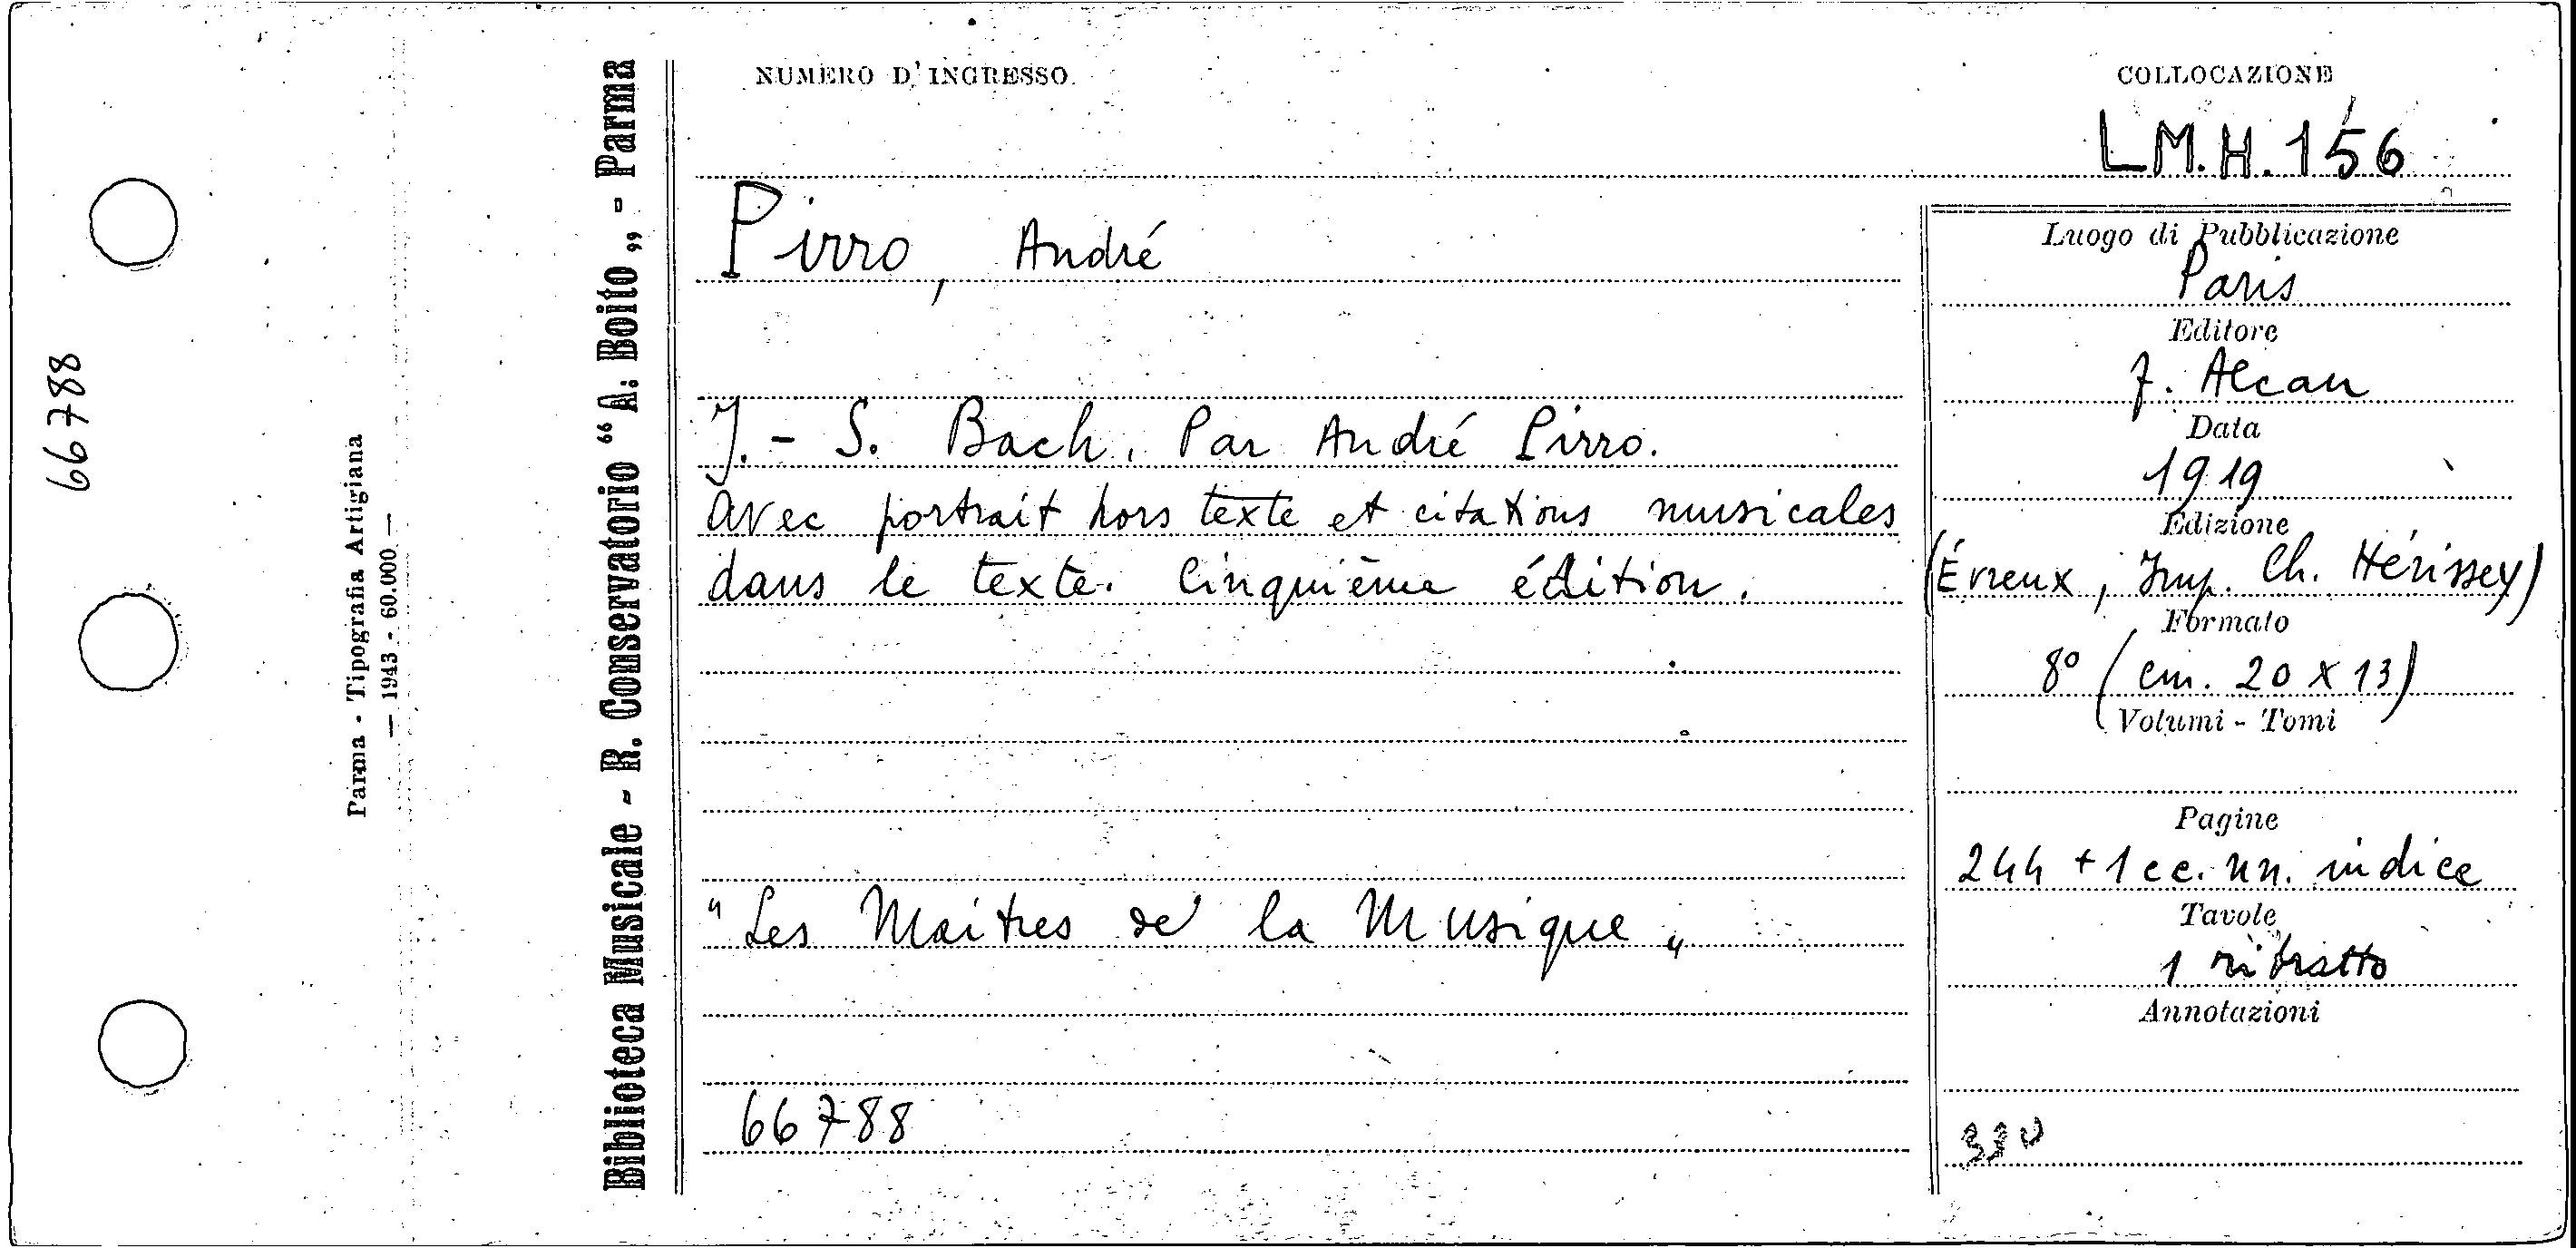 66788
Parma - Tipografia Artigiana
— 1943 - 60.000 —
Biblioteca Musicale - R. Conservatorio “A. Boito„ - Parma
NUMERO D'INGRESSO
COLLOCAZIONE
L.M.H.156
Pirro, André
J.-S. Bach. Par André Pirro.
avec portrait hors texte et citations musicales
dans le texte. Cinquième édition.
"Les Maitres de la Musique„
66788
Luogo di Pubblicazione
Paris
Editore
F. Alcan
Data
1919
Edizione
(Évreux, Imp. Ch. Hérissey)
Formato
8° (cm. 20 x 13)
Volumi - Tomi
Pagine
244 + 1 cc. nn. indice
Tavole
1 ritratto
Annotazioni